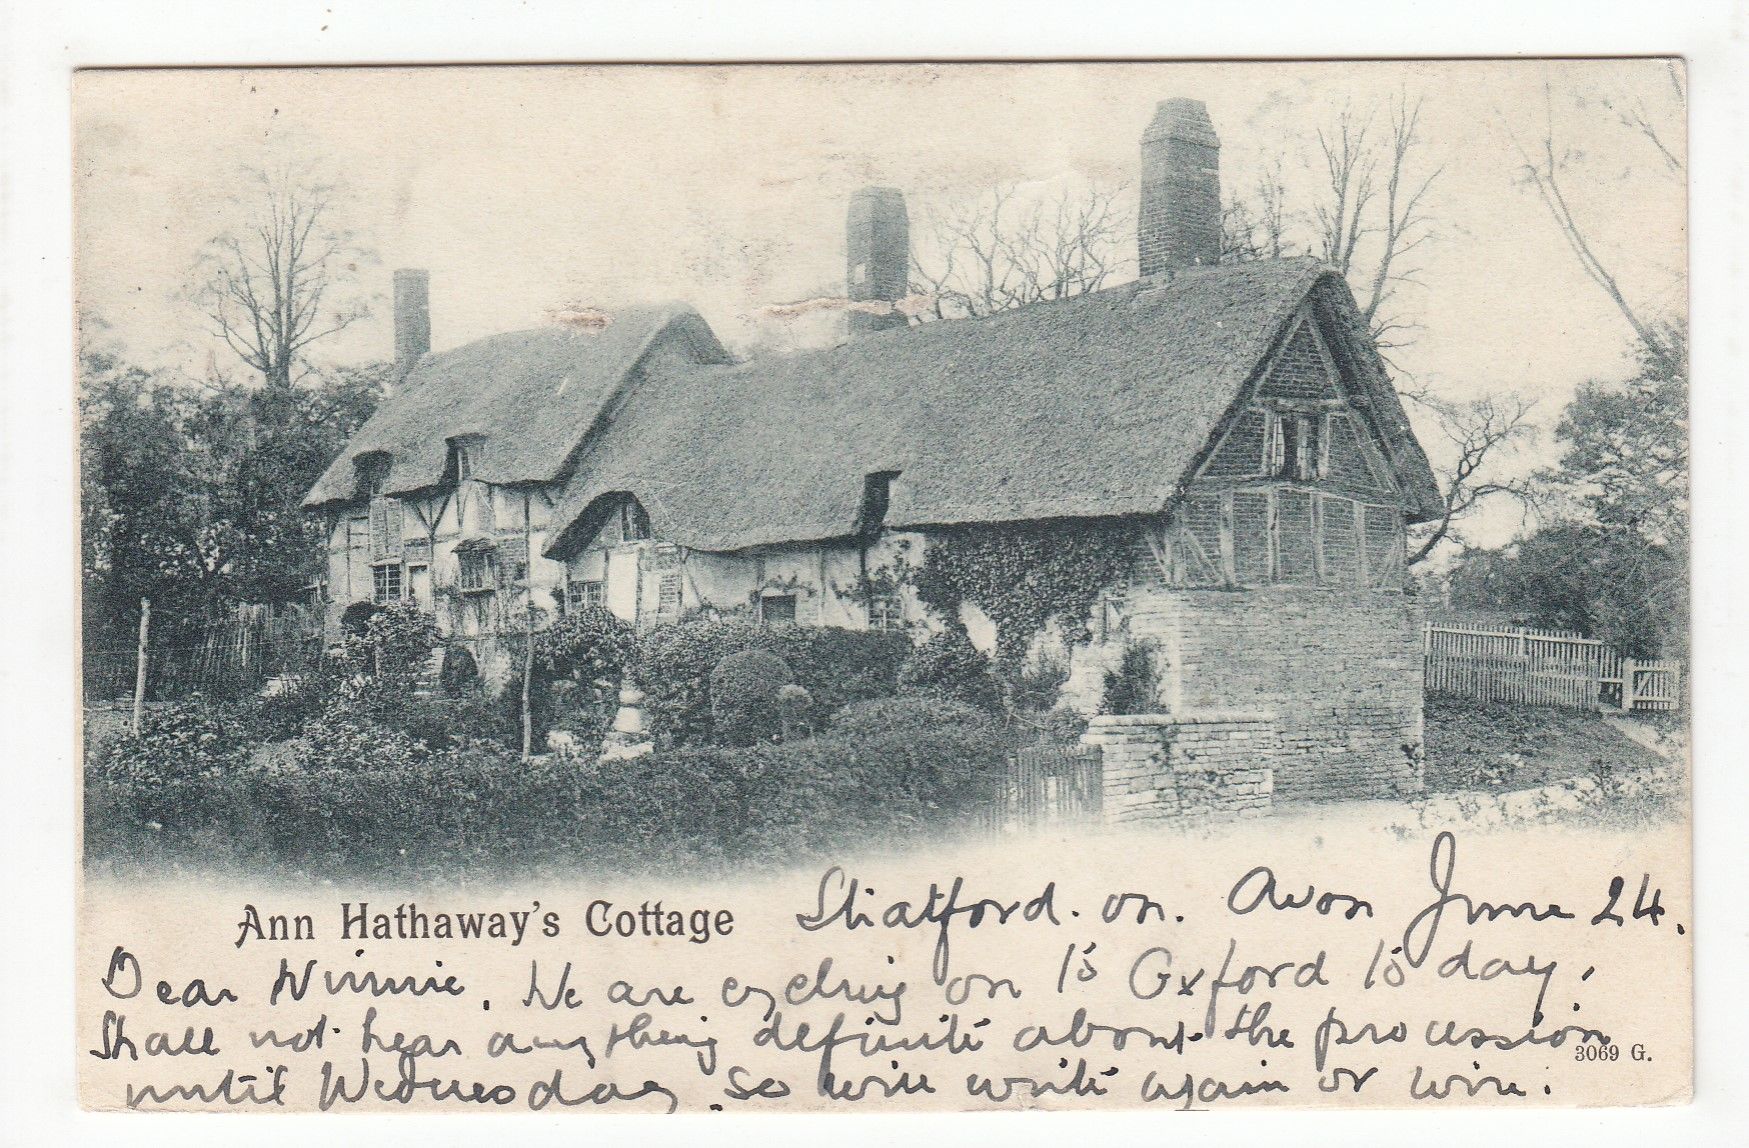 Ann Hathaway's Cottage
Stratford. on. Avon June 24.
Dear Winnie. We are cycling on to Oxford to day.
Shall not hear anything definite about the procession
3069 G.
until Wednesday so will write again or wire.